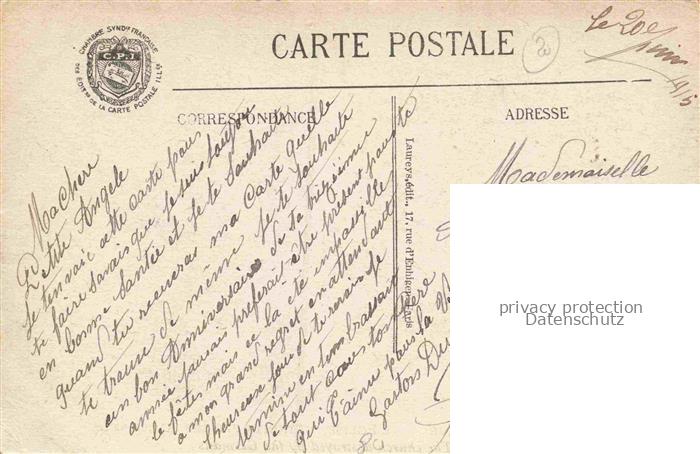 CARTE POSTALE
CHAMBRE SYNDle FRANÇAISE
DES EDITrs DE LA CARTE POSTALE ILLée
C.P.I
2
le 20
Juin
1915
CORRESPONDANCE
ADRESSE
Laureys, édit., 17, rue d'Enghien, Paris
Mademoiselle
Ma chere
Petite Angele
Je t'envoie cette carte pour
te faire savoir que je suis toujours
en bonne santée et je te souhaite
quand tu receveras ma carte quelle
te trouve de même je te souhaite
un bon Anniversaire de ta treizième
année j'aurais préferait être présent pour te
le fêtes mais ce la été impossible
a mon grand regret en attendant
l'heureux jour de te revoir je
termine en t'embrassant
de tout cœur ton Père
qui t'aime pour la
Gaston
privacy protection
Datenschutz